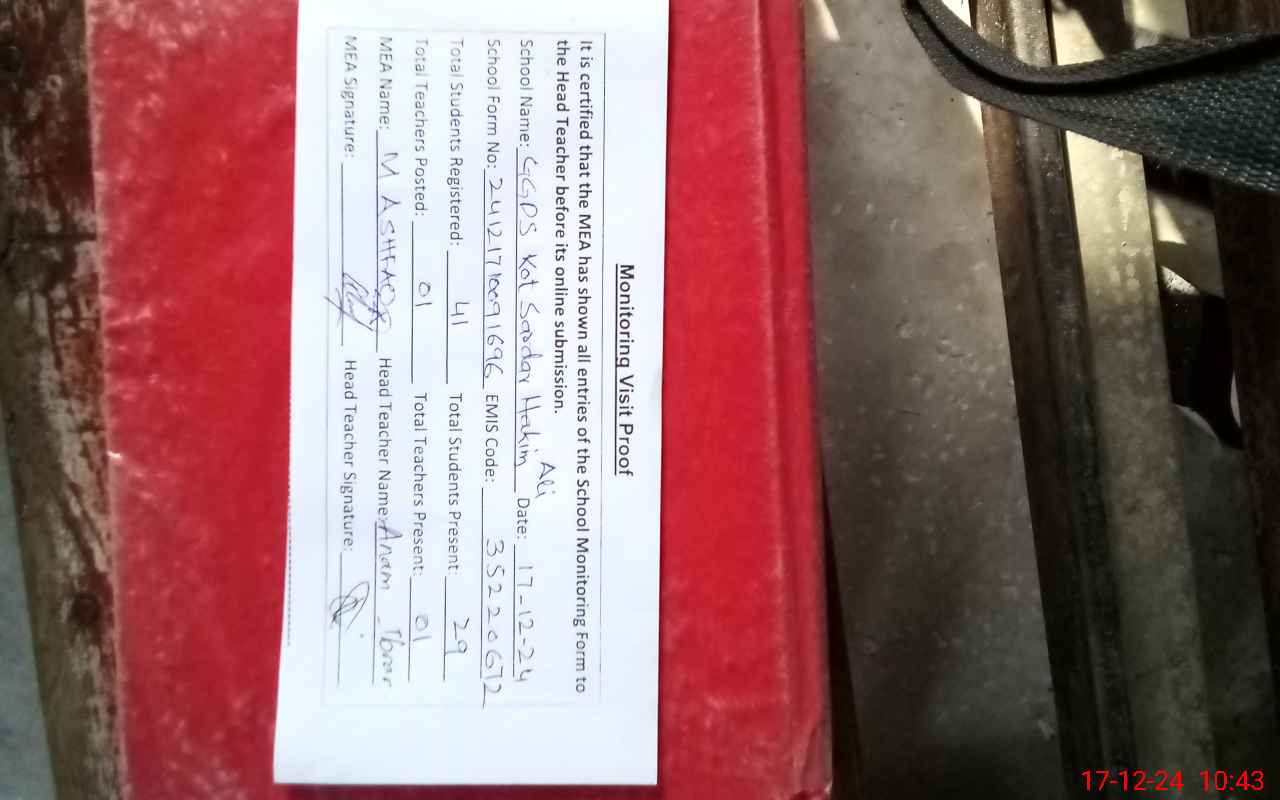 Monitoring Visit Proof
It is certified that the MEA has shown all entries of the School Monitoring Form to
the Head Teacher before its online submission.
School Name: GGPS Kot Sardar Hakim Ali Date: 17-12-24
School Form No: 24121710091696 EMIS Code: 35220672
Total Students Registered: 41 Total Students Present: 29
Total Teachers Posted: 01 Total Teachers Present: 01
MEA Name: M ASHFAQ Head Teacher Name: Anam Ibrar
MEA Signature: Head Teacher Signature:
17-12-24 10:43